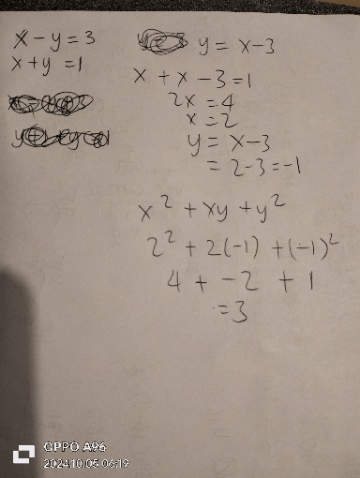 x - y = 3
x + y = 1
y = x-3
x + x - 3 = 1
2x = 4
x = 2
y = x-3
= 2-3 = -1
x² + xy + y²
2² + 2(-1) + (-1)²
4 + -2 + 1
= 3
OPPO A96
2024.10.05 06:19